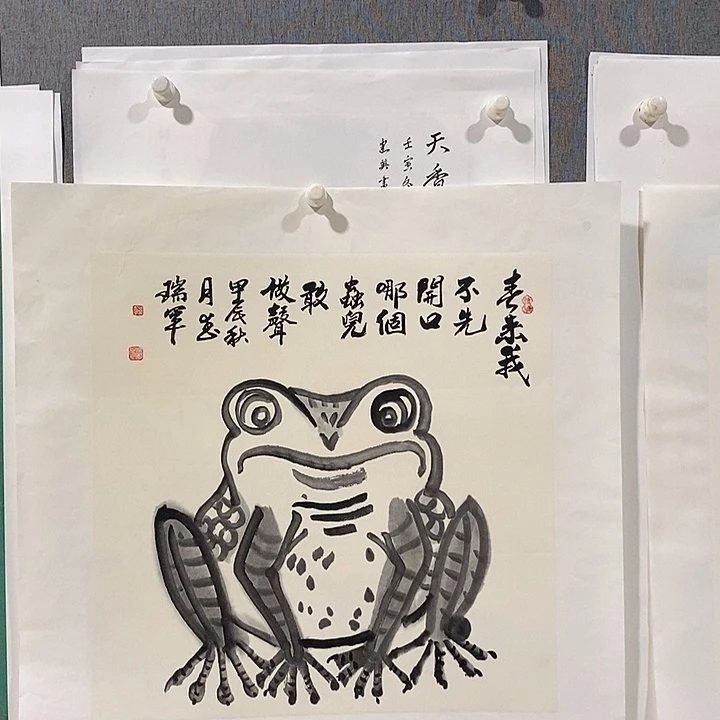 春来我
不先
開口
哪個
蟲兒
敢
做聲
甲辰秋
月
瑞軍
天香
壬寅冬